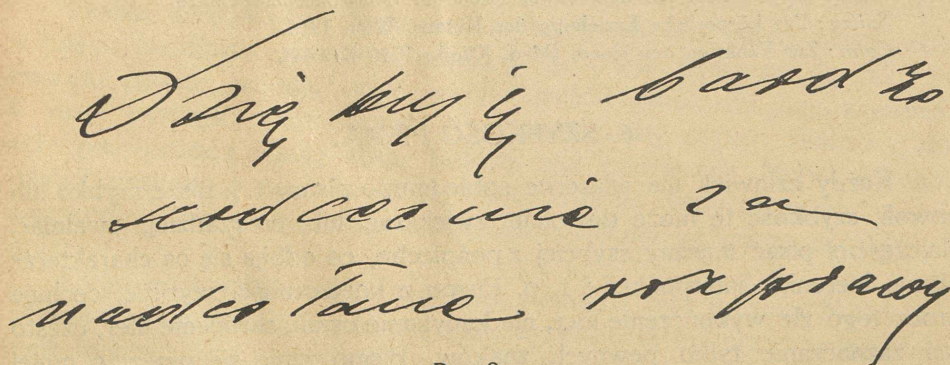 Dziękuję bardzo
serdecznie za
nadesłane rozprawy